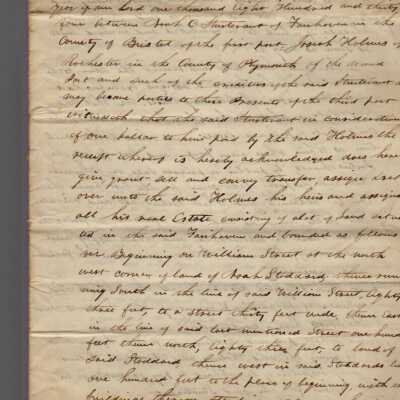 year of our Lord one thousand eight Hundred and thirty
four between C Sturtevant of Fairhaven in the
County of Bristol of the first part, Josiah Holmes of
Rochester in the County of Plymouth of the second
Part and such of the creditors of the said Sturtevant as
may become parties to these Presents of the third part
Witnesseth that the said Sturtevant in consideration
of one dollar to him paid by the said Holmes the
receipt whereof is hereby acknowledged does here
give grant sell and convey transfer, assign & set
over unto the said Holmes his heirs and assigns
all his real Estate consisting of a lot of land situa
ted in the said Fairhaven and bounded as follows
viz. Beginning on William Street at the north
west corner of land of Noah Stoddard thence runn
ing South in the line of said William Street, eighty
three feet, to a street thirty feet wide, thence east
in the line of said last mentioned Street one hund
feet thence north, eighty three feet, to land of
said Stoddard thence west in said Stoddards line
one hundred feet to the place of beginning, with
buildings thereon